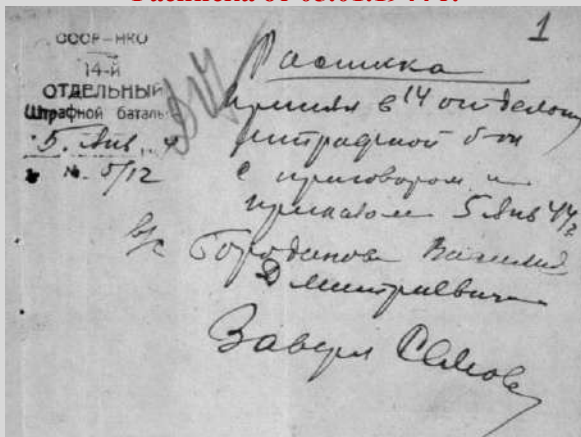 Расписка от 05.01.1944 г.
1
СССР–НКО
14-й
ОТДЕЛЬНЫЙ
Штрафной баталь
5. Янв. 4
№ 5/12
Расписка
принял в 14 отдельн
штрафной б-он
с приговором и
приказом 5 Янв 44 г
в/с Городанова Василия
Дмитриевича
Заверил